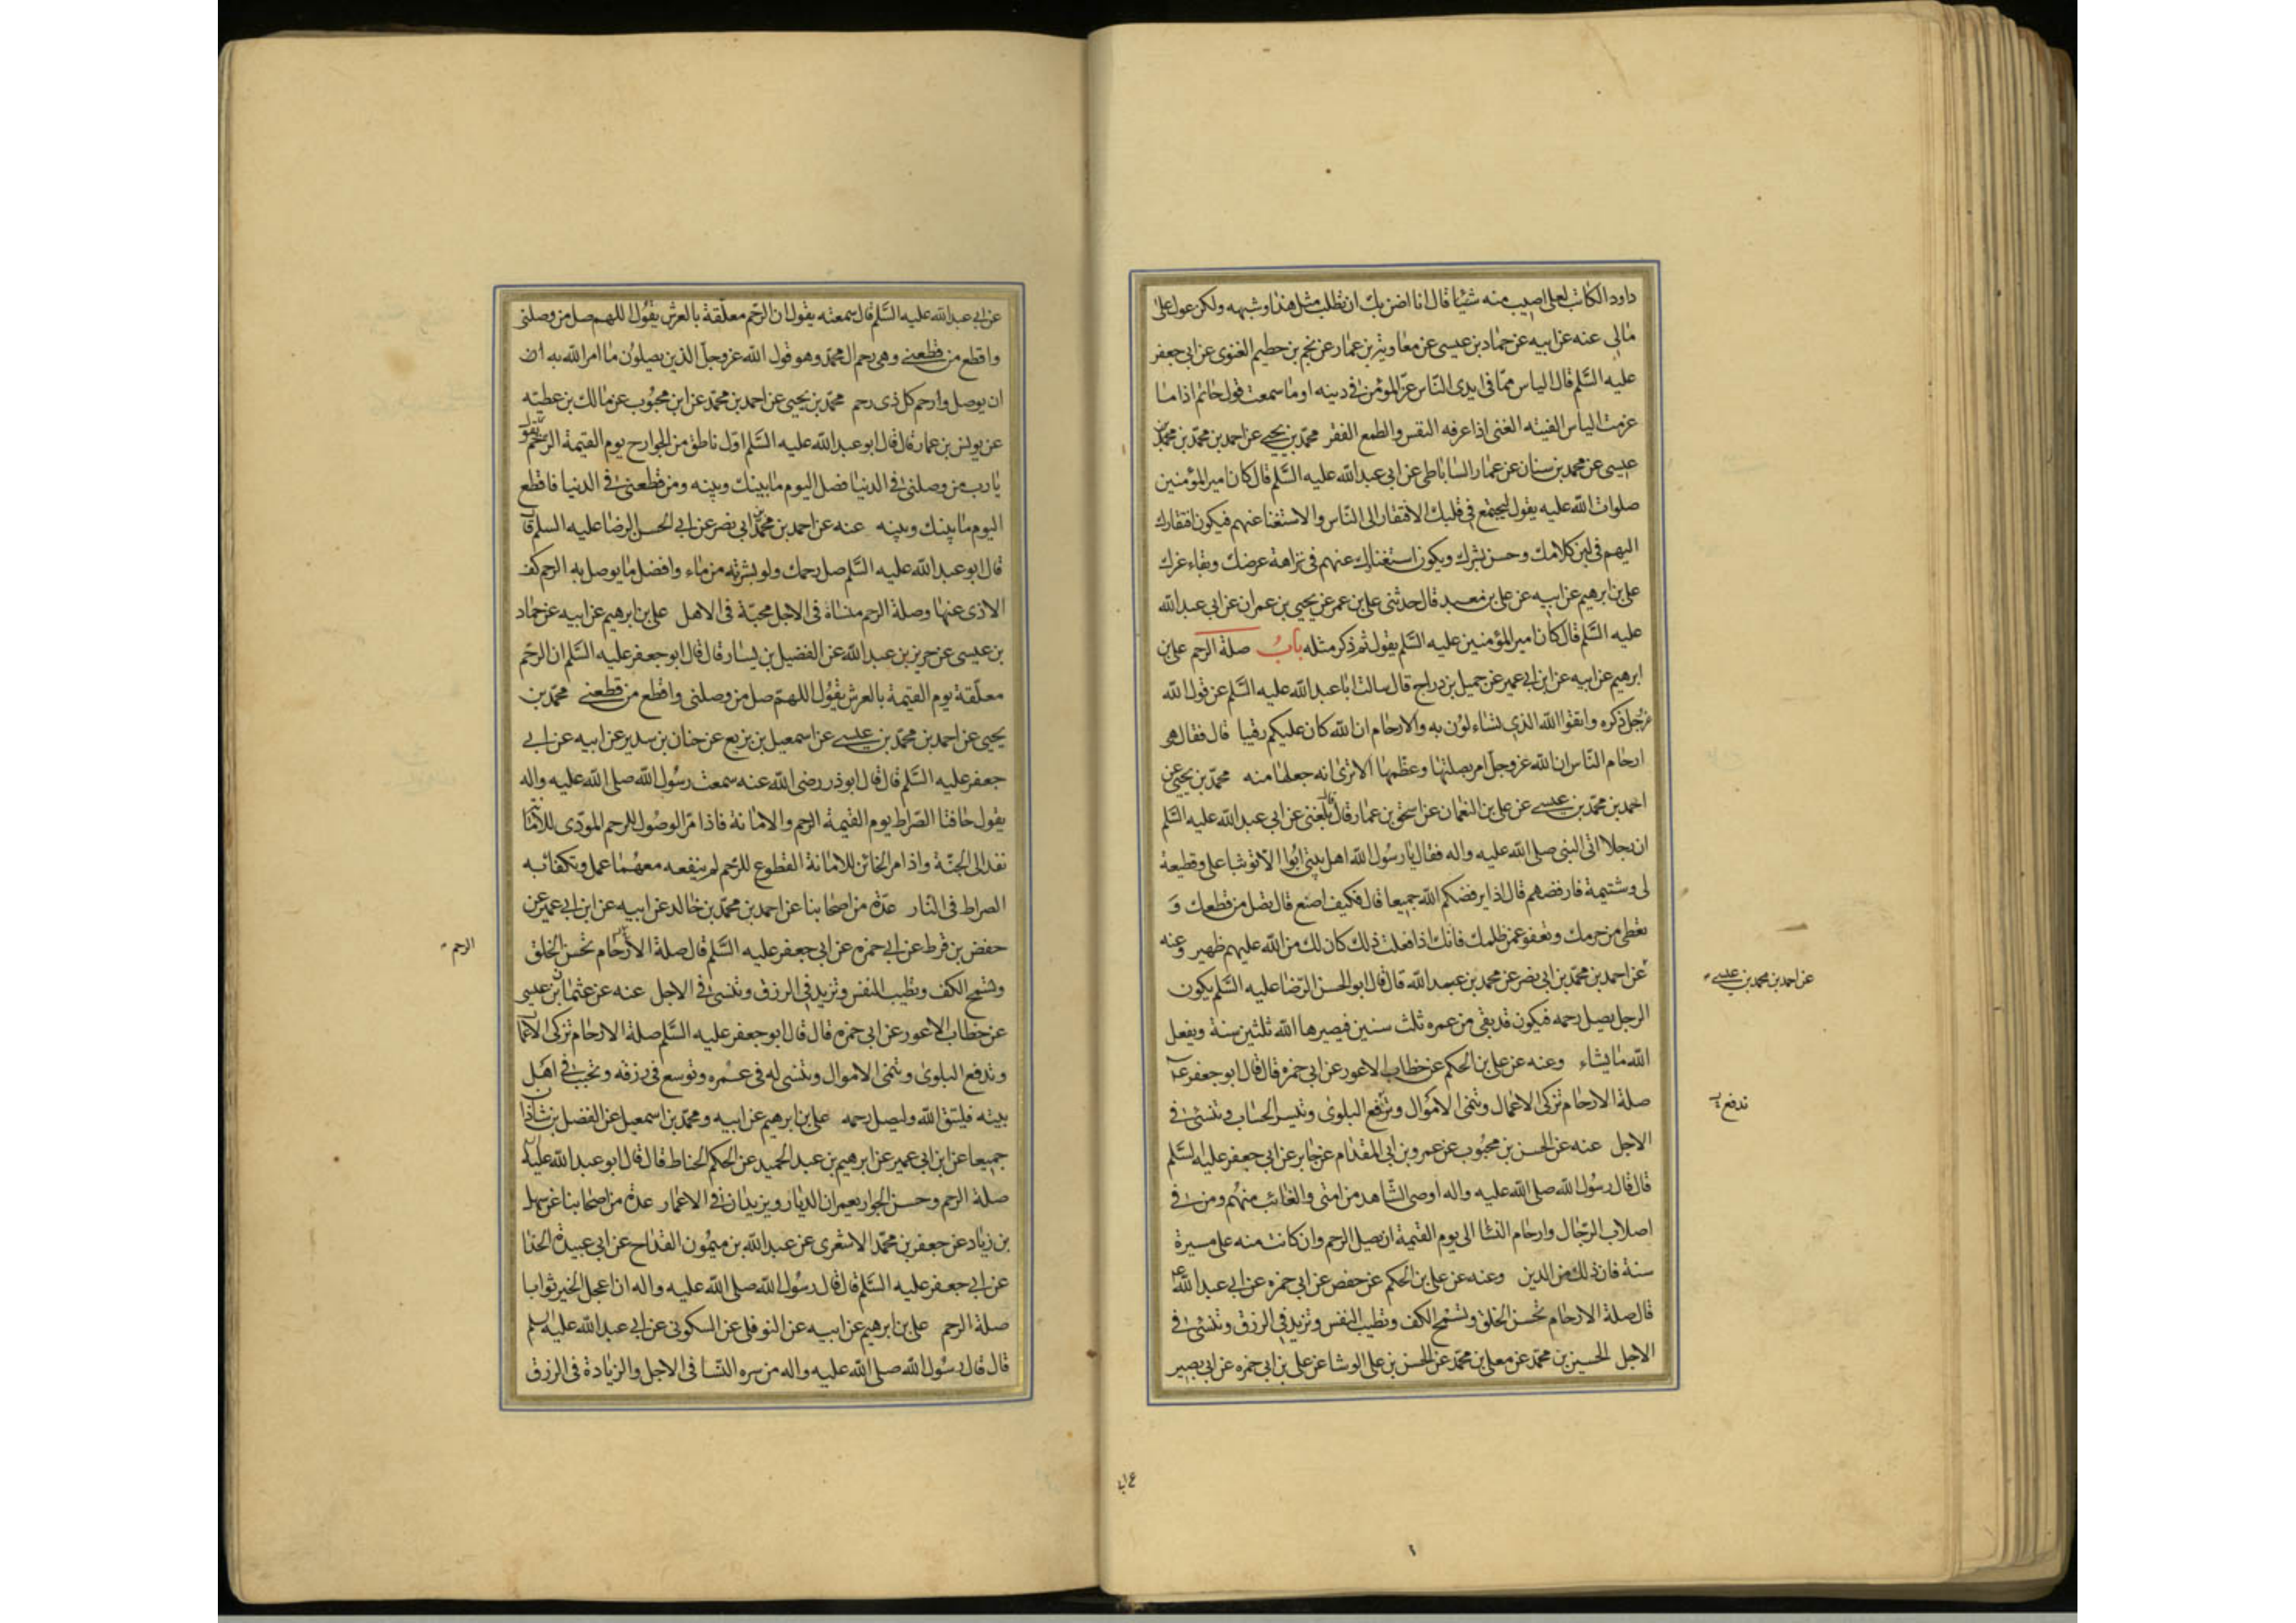 داود الكاتب لعلى اصيب منه شيئا قال انا اضن بك ان تطلب مثل هذا وشبهه ولكن عول على
مالى عنه عن ابيه عن حماد بن عيسى عن معاوية بن عمار عن نجم بن حطيم الغنوى عن ابى جعفر
عليه السلم قال الياس مما فى ايدى الناس عز المؤمن فى دينه اوما سمعت قول حاتم اذا ما
عزمت الياس الفيته الغنى اذا عرفه النفس والطمع الفقر محمد بن يحيى عن احمد بن محمد بن محمد بن
عيسى عن محمد بن سنان عن عمار الساباطى عن ابى عبد الله عليه السلم قال كان امير المؤمنين
صلوات الله عليه يقول ليجتمع فى قلبك الافتقار الى الناس والاستغنا عنهم فيكون افتقارك
اليهم فى لين كلامك وحسن بشرك ويكون استغناؤك عنهم فى نزاهة عرضك وبقاء عزك
على بن ابرهيم عن ابيه عن على بن معبد قال حدثنى على بن عمر عن يحيى بن عمران عن ابى عبد الله
عليه السلم قال كان امير المؤمنين عليه السلم يقول ثم ذكر مثله باب صلة الرحم على بن
ابرهيم عن ابيه عن ابن ابى عمير عن جميل بن دراج قال سالت ابا عبد الله عليه السلم عن قول الله
عز وجل ذكره واتقوا الله الذى تساءلون به والارحام ان الله كان عليكم رقيبا قال فقال هو
ارحام الناس ان الله عز وجل امر بصلتها وعظمها الا ترى انه جعلها منه محمد بن يحيى عن
احمد بن محمد بن عيسى عن على بن النعمان عن اسحق بن عمار قال قال بلغنى عن ابى عبد الله عليه السلم
ان رجلا اتى النبى صلى الله عليه واله فقال يا رسول الله اهل بيتى ابوا الا توثبا على وقطيعة
لى وشتيمة فارفضهم قال اذا يرفضكم الله جميعا قال فكيف اصنع قال تصل من قطعك و
تعطى من حرمك وتعفو عمن ظلمك فانك اذا فعلت ذلك كان لك من الله عليهم ظهير وعنه
عن احمد بن محمد بن ابى نصر عن محمد بن عبيد الله قال قال ابو الحسن الرضا عليه السلم يكون
عن احمد بن محمد بن عيسى
الرجل يصل رحمه فيكون قد بقى من عمره ثلث سنين فيصيرها الله ثلثين سنة ويفعل
الله ما يشاء وعنه عن على بن الحكم عن خطاب الاعور عن ابى حمزه قال قال ابو جعفر ع
صلة الارحام تزكى الاعمال وتنمى الاموال وترفع البلوى وتيسر الحساب وتنسئ فى
تدفع
الاجل عنه عن الحسن بن محبوب عن عمرو بن ابى المقدام عن جابر عن ابى جعفر عليه السلم
قال قال رسول الله صلى الله عليه واله اوصى الشاهد من امتى والغائب منهم ومن فى
اصلاب الرجال وارحام النسا الى يوم القيمة ان يصل الرحم وان كانت منه على مسيرة
سنة فان ذلك من الدين وعنه عن على بن الحكم عن حفص عن ابى حمزه عن ابى عبد الله ع
قال صلة الارحام تحسن الخلق وتسمح الكف وتطيب النفس وتزيد فى الرزق وتنسئ فى
الاجل الحسين بن محمد عن معلى بن محمد عن الحسن بن على الوشا عن على بن ابى حمزه عن ابى بصير
عن ابى عبد الله عليه السلم قال سمعته يقول ان الرحم معلقة بالعرش يقول اللهم صل من وصلنى
واقطع من قطعنى وهى رحم ال محمد وهو قول الله عز وجل الذين يصلون ما امر الله به ان
ان يوصل وارحم كل ذى رحم محمد بن يحيى عن احمد بن محمد عن ابن محبوب عن مالك بن عطيه
عن يونس بن عمار قال قال ابو عبد الله عليه السلم اول ناطق من الجوارح يوم القيمة الرحم تقول
يا رب من وصلنى فى الدنيا فصل اليوم ما بينك وبينه ومن قطعنى فى الدنيا فاقطع
اليوم ما بينك وبينه عنه عن احمد بن محمد بن ابى نصر عن ابى الحسن الرضا عليه السلم قال
قال ابو عبد الله عليه السلم صل رحمك ولو بشربة من ماء وافضل ما يوصل به الرحم كف
الاذى عنها وصلة الرحم منساة فى الاجل محبة فى الاهل على بن ابرهيم عن ابيه عن حماد
بن عيسى عن حريز بن عبد الله عن الفضيل بن يسار قال قال ابو جعفر عليه السلم ان الرحم
معلقة يوم القيمة بالعرش يقول اللهم صل من وصلنى واقطع من قطعنى محمد بن
يحيى عن احمد بن محمد بن عيسى عن اسمعيل بن بزيع عن حنان بن سدير عن ابيه عن ابى
جعفر عليه السلم قال قال ابوذر رضى الله عنه سمعت رسول الله صلى الله عليه واله
يقول حافتا الصراط يوم القيمة الرحم والامانة فاذا مر الوصول للرحم المودى للامانة
نفذ الى الجنة واذا مر الخائن للامانة القطوع للرحم لم ينفعه معهما عمل وتكفا به
الصراط فى النار عدة من اصحابنا عن احمد بن محمد بن خالد عن ابيه عن ابن ابى عمير عن
حفص بن قرط عن ابى حمزه عن ابى جعفر عليه السلم قال صلة الارحام تحسن الخلق
الرحم
وتسمح الكف وتطيب النفس وتزيد فى الرزق وتنسئ فى الاجل عنه عن عثمان بن عيسى
عن خطاب الاعور عن ابى حمزه قال قال ابو جعفر عليه السلم صلة الارحام تزكى الاعمال
وتدفع البلوى وتنمى الاموال وتنسى له فى عمره وتوسع فى رزقه وتحبب فى اهل
بيته فليتق الله وليصل رحمه على بن ابرهيم عن ابيه ومحمد بن اسمعيل عن الفضل بن شاذان
جميعا عن ابن ابى عمير عن ابرهيم بن عبد الحميد عن الحكم الحناط قال قال ابو عبد الله عليه
صلة الرحم وحسن الجوار يعمران الديار ويزيدان فى الاعمار عدة من اصحابنا عن سهل
بن زياد عن جعفر بن محمد الاشعرى عن عبد الله بن ميمون القداح عن ابى عبيدة الحذا
عن ابى جعفر عليه السلم قال قال رسول الله صلى الله عليه واله ان اعجل الخير ثوابا
صلة الرحم على بن ابرهيم عن ابيه عن النوفلى عن السكونى عن ابى عبد الله عليه السلم
قال قال رسول الله صلى الله عليه واله من سره النسا فى الاجل والزيادة فى الرزق